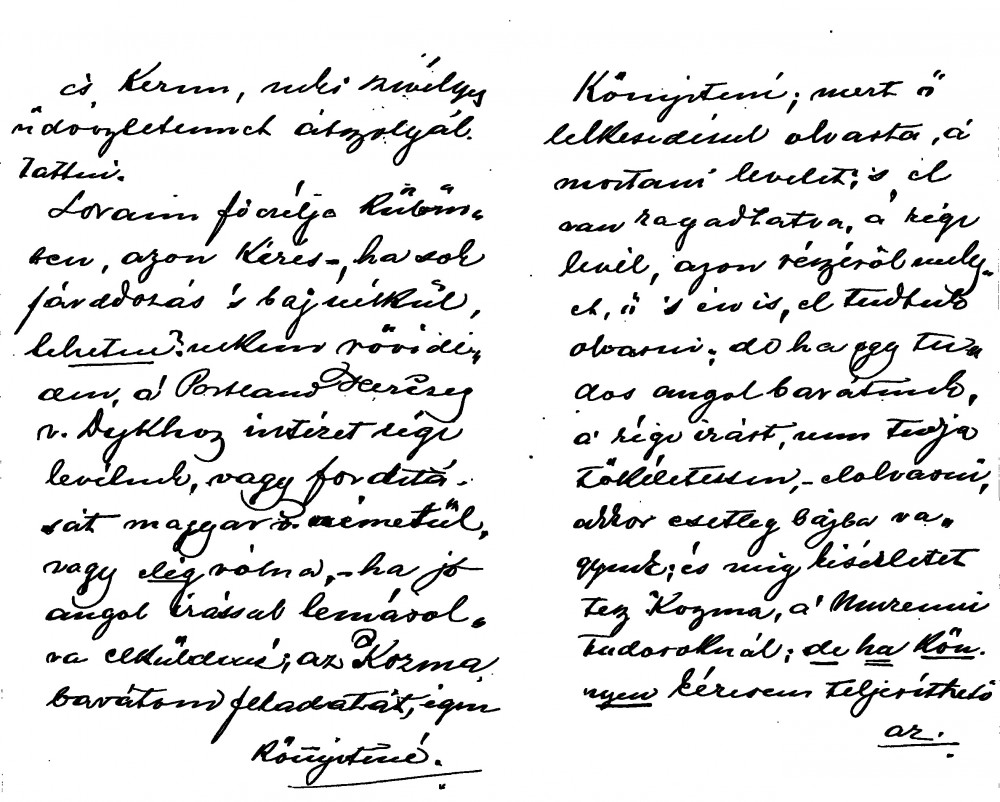 és Kérem, neki szívélyes
üdvözletemet átszolgál-
tattni.
Soraim főczélja
azon Kérés-, ha sok
fárddozás 's baj nélkül,
lehetne? nekem
á Portland Herczeg
v. Dykhoz intézet régi
levélnek, vagy fordítá-
sát magyar v. németül,
vagy elég vólna,- ha jó
angol írással lemásol-
va elküldené; az Kozma
barátom feladatát, igen
Könnyítené.
Könnyítení; mert ő
lelkesedéssel olvasta, á
mostani levelet; 's el
van ragadtatva, á régi
levél, azon részéről mely-
et, ő 's én is, el tudtuk
olvasni; de ha egy tu-
dos angol barátunk,
á régi írást, nem tudja
tökéletessen,- elolvasni,
akkor esetleg bajba va-
gyunk; és míg kisérletet
tesz Kozma, á Muzeumi
Tudosoknál; de ha Kön-
nyen kérésem teljesíthető
az.